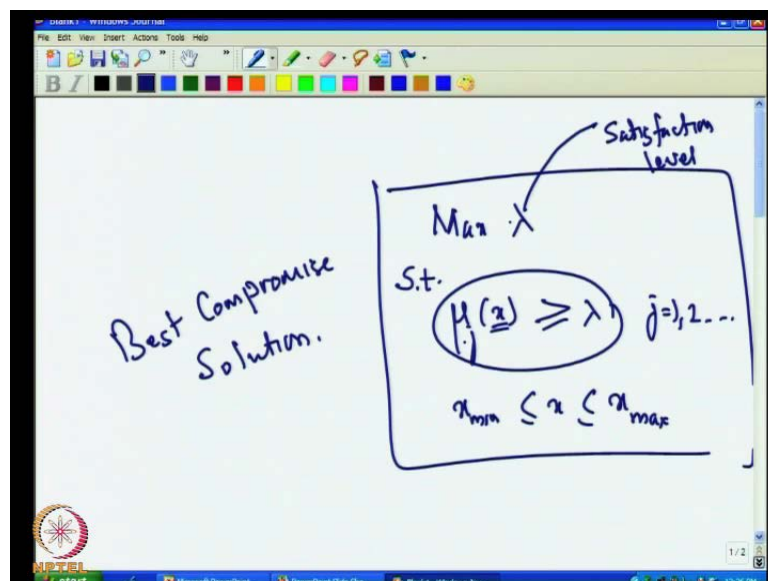 Blank1 - Windows Journal
File Edit View Insert Actions Tools Help
B I
Satisfaction
level
Max λ
S.t.
μj (x) ≥ λ j=1,2....
xmin ≤ x ≤ xmax
Best Compromise
Solution.
1/2
NPTEL
start